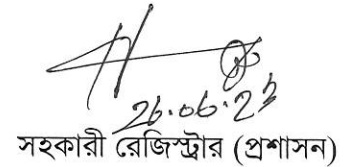 26.06.23
সহকারী রেজিস্ট্রার (প্রশাসন)